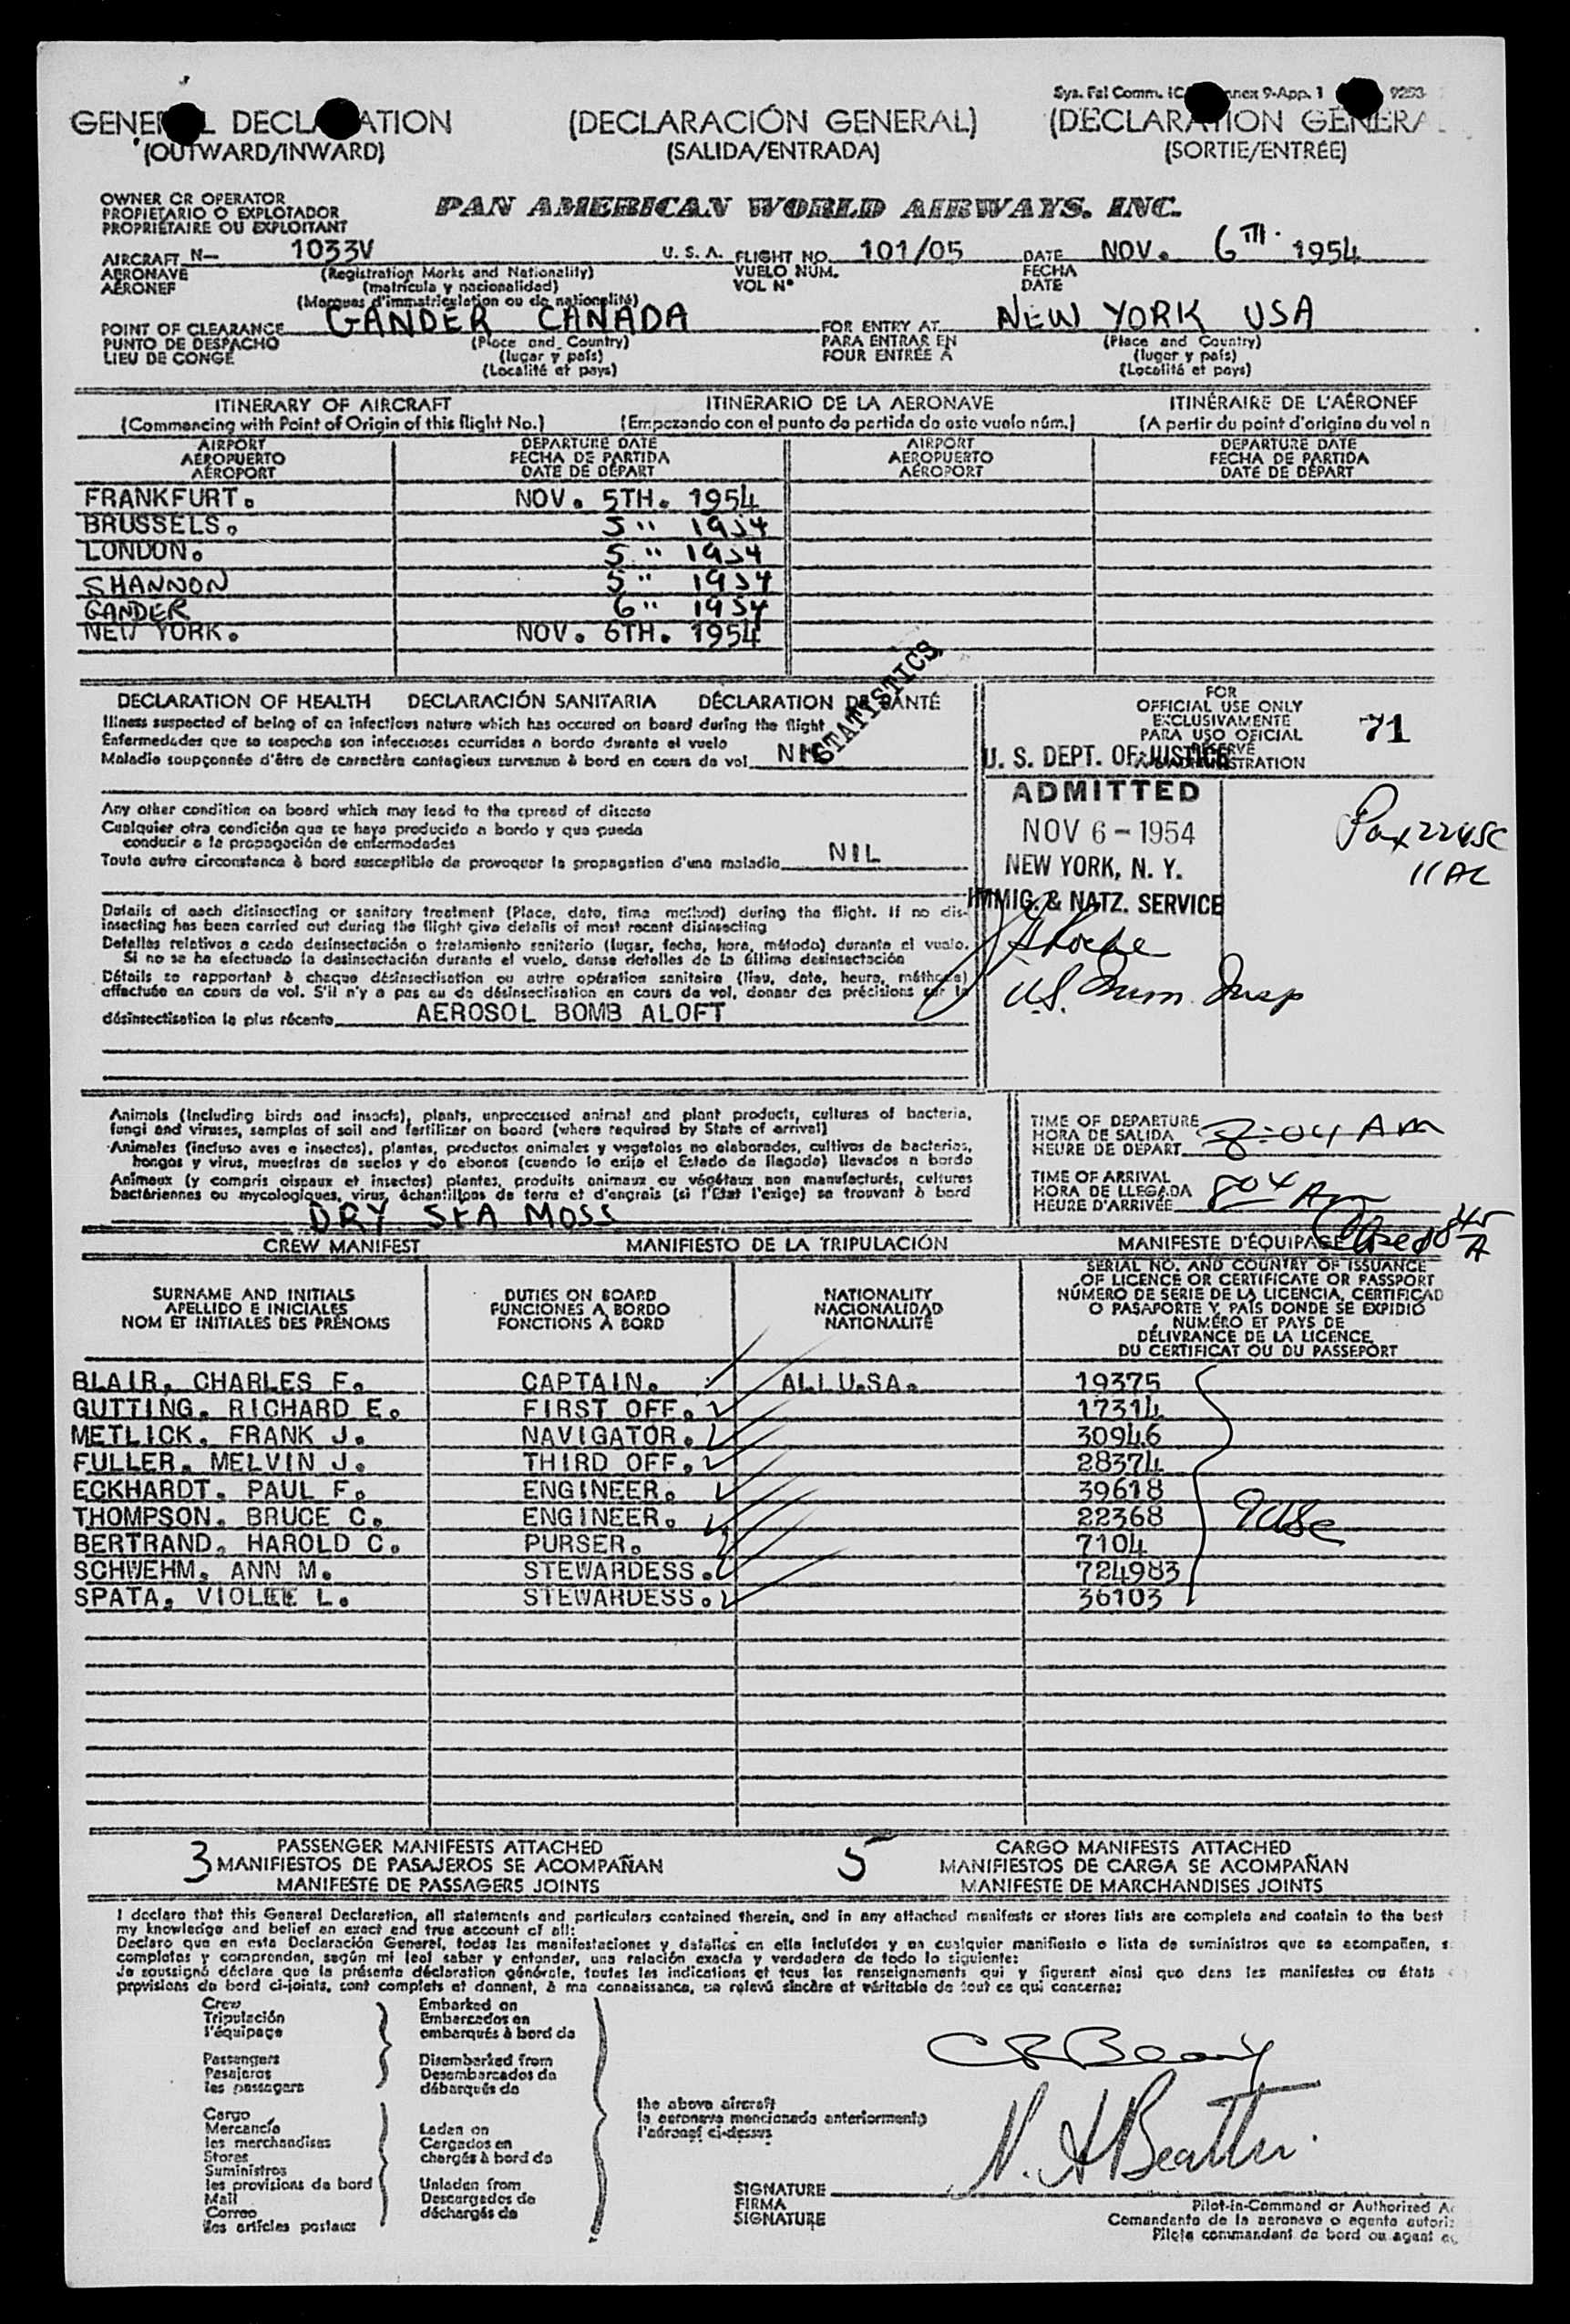 Sys. Fal Comm. ICA Annex 9-App. 1 9253
GENERAL DECLARATION (DECLARACIÓN GENERAL) (DÉCLARATION GÉNÉRA
(OUTWARD/INWARD) (SALIDA/ENTRADA) (SORTIE/ENTRÉE)
OWNER OR OPERATOR
PROPIETARIO O EXPLOTADOR
PROPRIÉTAIRE OU EXPLOITANT
PAN AMERICAN WORLD AIRWAYS, INC.
AIRCRAFT N- 1033V U. S. A. FLIGHT NO. 101/05 DATE NOV. 6TH. 1954
AERONAVE (Registration Marks and Nationality) VUELO NÚM. FECHA
AÉRONEF (matrícula y nacionalidad) VOL N° DATE
(Marques d'immatriculation ou de nationalité)
POINT OF CLEARANCE GANDER CANADA FOR ENTRY AT NEW YORK USA
PUNTO DE DESPACHO (Place and Country) PARA ENTRAR EN (Place and Country)
LIEU DE CONGÉ (lugar y país) POUR ENTRÉE A (lugar y país)
(Localité et pays) (Localité et pays)
ITINERARY OF AIRCRAFT ITINERARIO DE LA AERONAVE ITINÉRAIRE DE L'AÉRONEF
(Commencing with Point of Origin of this flight No.) (Empezando con el punto de partida de este vuelo núm.) (A partir du point d'origine du vol n
AIRPORT DEPARTURE DATE AIRPORT DEPARTURE DATE
AEROPUERTO FECHA DE PARTIDA AEROPUERTO FECHA DE PARTIDA
AÉROPORT DATE DE DÉPART AÉROPORT DATE DE DÉPART
FRANKFURT. NOV. 5TH. 1954
BRUSSELS. 5 " 1954
LONDON. 5 " 1954
SHANNON 5 " 1954
GANDER 6 " 1954
NEW YORK. NOV. 6TH. 1954
STATISTICS
DECLARATION OF HEALTH DECLARACIÓN SANITARIA DÉCLARATION DE SANTÉ
Illness suspected of being of an infectious nature which has occured on board during the flight
Enfermedades que se sospecha son infecciosas ocurridas a bordo durante el vuelo
Maladie soupçonnée d'être de caractère contagieux survenue à bord en cours de vol NIL
Any other condition on board which may lead to the spread of disease
Cualquier otra condición que se haya producido a bordo y que pueda
conducir a la propagación de enfermedades
Toute autre circonstance à bord susceptible de provoquer la propagation d'une maladie NIL
Details of each disinsecting or sanitary treatment (Place, date, time method) during the flight. If no dis-
insecting has been carried out during the flight give details of most recent disinsecting
Detalles relativos a cada desinsectación o tratamiento sanitario (lugar, fecha, hora, método) durante el vuelo.
Si no se ha efectuado la desinsectación durante el vuelo, dense detalles de la última desinsectación
Détails se rapportant à chaque désinsectisation ou autre opération sanitaire (lieu, date, heure, méthode)
effectuée en cours de vol. S'il n'y a pas eu de désinsectisation en cours de vol, donner des précisions sur la
désinsectisation la plus récente AEROSOL BOMB ALOFT
FOR
OFFICIAL USE ONLY
EXCLUSIVAMENTE
PARA USO OFICIAL
RÉSERVÉ
A L'ADMINISTRATION
71
U. S. DEPT. OF JUSTICE
ADMITTED
NOV 6 - 1954
NEW YORK, N. Y.
IMMIG. & NATZ. SERVICE
U.S. Imm. Insp
Pax 22 USC
11 AL
Animals (Including birds and insects), plants, unprocessed animal and plant products, cultures of bacteria,
fungi and viruses, samples of soil and fertilizer on board (where required by State of arrival)
Animales (incluso aves e insectos), plantas, productos animales y vegetales no elaborados, cultivos de bacterias,
hongos y virus, muestras de suelos y de abonos (cuando lo exija el Estado de llegada) llevados a bordo
Animaux (y compris oiseaux et insectes) plantes, produits animaux ou végétaux non manufacturés, cultures
bactériennes ou mycologiques, virus, échantillons de terre et d'engrais (si l'État l'exige) se trouvant à bord
DRY SEA MOSS
TIME OF DEPARTURE
HORA DE SALIDA
HEURE DE DÉPART 8:04 AM
TIME OF ARRIVAL
HORA DE LLEGADA
HEURE D'ARRIVÉE 804 Am
845 A
CREW MANIFEST MANIFIESTO DE LA TRIPULACIÓN MANIFESTE D'ÉQUIPAGE
SURNAME AND INITIALS DUTIES ON BOARD NATIONALITY
APELLIDO E INICIALES FUNCIONES A BORDO NACIONALIDAD
NOM ET INITIALES DES PRÉNOMS FONCTIONS À BORD NATIONALITÉ
SERIAL NO. AND COUNTRY OF ISSUANCE
OF LICENCE OR CERTIFICATE OR PASSPORT
NÚMERO DE SERIE DE LA LICENCIA, CERTIFICAD
O PASAPORTE Y PAÍS DONDE SE EXPIDIÓ
NUMÉRO ET PAYS DE
DÉLIVRANCE DE LA LICENCE
DU CERTIFICAT OU DU PASSEPORT
BLAIR, CHARLES F. CAPTAIN. ALL U.SA. 19375
GUTTING. RICHARD E. FIRST OFF. 17314
METLICK. FRANK J. NAVIGATOR. 30946
FULLER. MELVIN J. THIRD OFF. 28374
ECKHARDT. PAUL F. ENGINEER. 39618
THOMPSON. BRUCE C. ENGINEER. 22368
BERTRAND. HAROLD C. PURSER. 7104
SCHWEHM. ANN M. STEWARDESS. 724983
SPATA. VIOLEE L. STEWARDESS. 36103
9 USC
3 PASSENGER MANIFESTS ATTACHED 5 CARGO MANIFESTS ATTACHED
MANIFIESTOS DE PASAJEROS SE ACOMPAÑAN MANIFIESTOS DE CARGA SE ACOMPAÑAN
MANIFESTE DE PASSAGERS JOINTS MANIFESTE DE MARCHANDISES JOINTS
I declare that this General Declaration, all statements and particulars contained therein, and in any attached manifests or stores lists are complete and contain to the best
my knowledge and belief an exact and true account of all:
Declaro que en esta Declaración General, todas las manifestaciones y detalles en ella incluídos y en cualquier manifiesto o lista de suministros que se acompañen, s
completas y comprenden, según mi leal saber y entender, una relación exacta y verdadera de todo lo siguiente:
Je soussigné déclare que la présente déclaration générale, toutes les indications et tous les renseignements qui y figurent ainsi que dans les manifestes ou états
provisions de bord ci-joints, sont complets et donnent, à ma connaissance, un relevé sincère et véritable de tout ce qui concerne:
Crew Embarked on
Tripulación Embarcados en
l'équipage embarqués à bord de
Passengers Disembarked from
Pasajeros Desembarcados de
les passagers débarqués de
Cargo
Mercancía Laden on
les merchandises Cargados en
Stores chargés à bord de
Suministros
les provisions de bord Unladen from
Mail Descargados de
Correo déchargés de
les articles postaux
the above aircraft
la aeronave mencionada anteriormente
l'aéronef ci-dessus
SIGNATURE
FIRMA
SIGNATURE
Pilot-in-Command or Authorized A
Comandante de la aeronave o agente autoriz
Pilote commandant de bord ou agent a